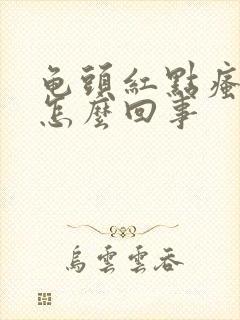 龟頭紅點瘙
怎麼回事
烏雲雲吞